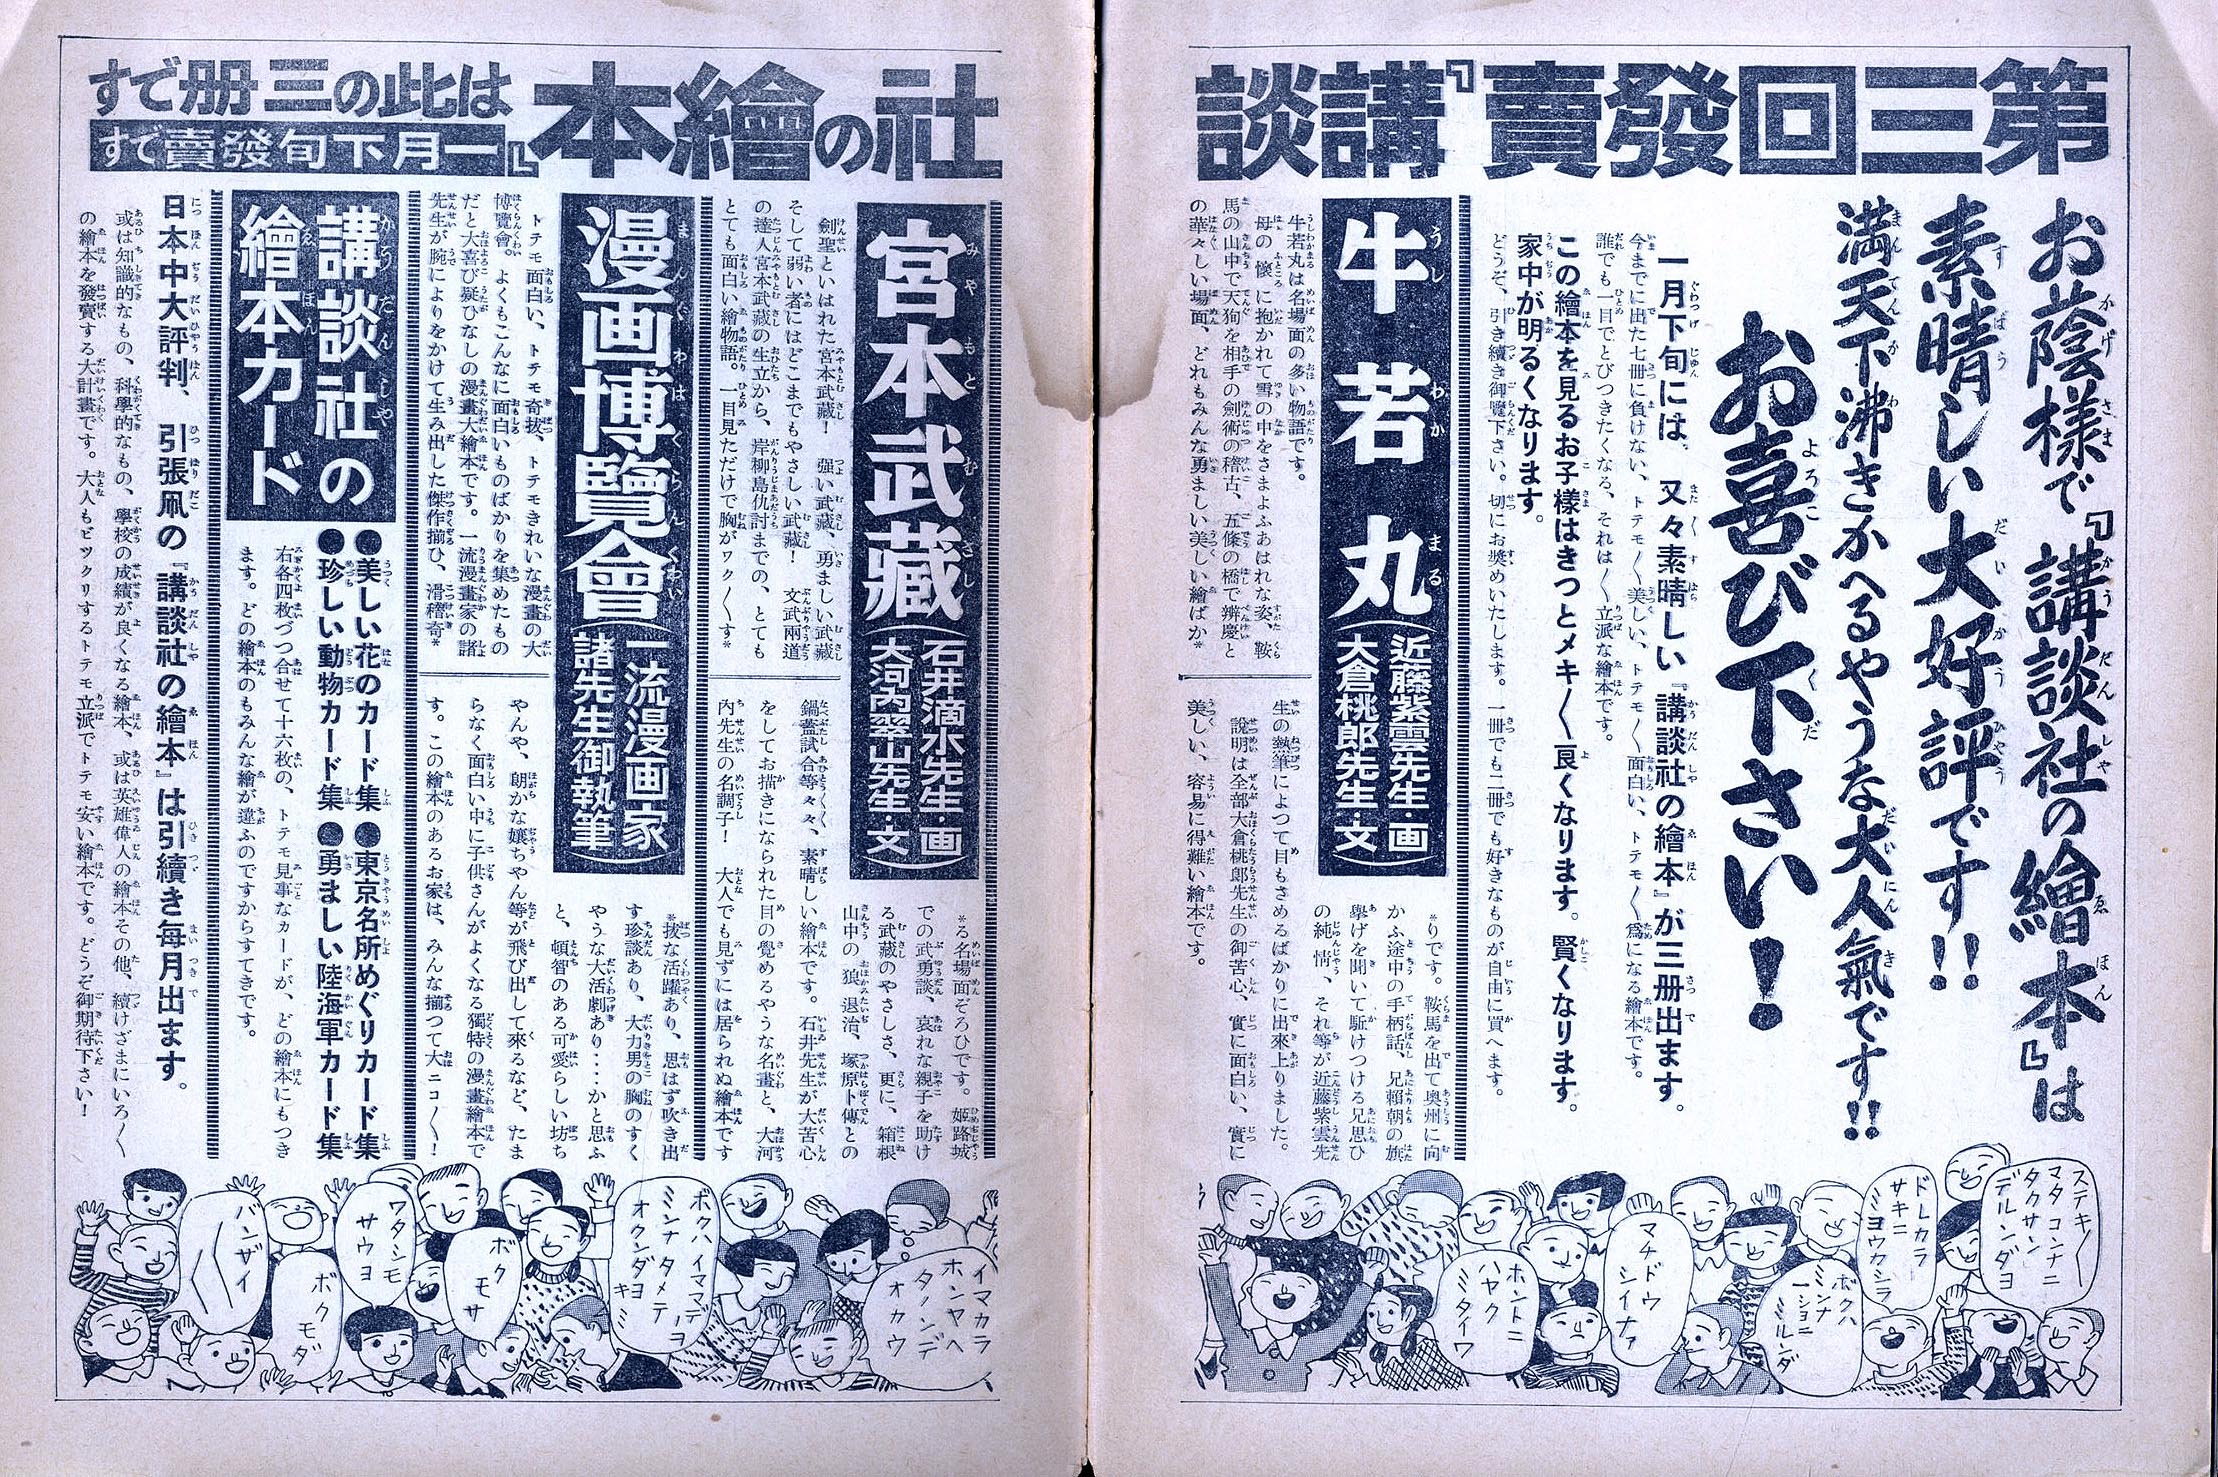 第三回發賣『講談社の繪本』は此の三册です
一月下旬發賣です
お蔭様で『講談社の繪本』は
素晴しい大好評です!!
満天下沸きかへるやうな大人氣です!!
お喜び下さい!
一月下旬には、又々素晴しい『講談社の繪本』が三册出ます。
今までに出た七冊に負けない、トテモ〱美しい、トテモ〱面白い、トテモ〱爲になる繪本です。
誰でも一目でとびつきたくなる、それは〱立派な繪本です。
この繪本を見るお子様はきつとメキ〱良くなります。賢くなります。
家中が明るくなります。
どうぞ、引き續き御覽下さい。切にお奬めいたします。一冊でも二冊でも好きなものが自由に買へます。
牛若丸
(近藤紫雲先生・画
大倉桃郎先生・文)
牛若丸は名場面の多い物語です。
母の懐に抱かれて雪の中をさまよふあはれな姿、鞍
馬の山中で天狗を相手の劍術の稽古、五條の橋で辨慶と
の華々しい場面、どれもみんな勇ましい美しい繪ばか*
*りです。鞍馬を出て奥州に向
かふ途中の手柄話、兄賴朝の旗
擧げを聞いて駈けつける兄思ひ
の純情、それ等が近藤紫雲先
生の熱筆によつて目もさめるばかりに出來上りました。
説明は全部大倉桃郎先生の御苦心、實に面白い、實に
美しい、容易に得難い繪本です。
宮本武藏
(石井滴水先生・画
大河内翠山先生・文)
劍聖といはれた宮本武藏! 強い武藏、勇ましい武藏
そして弱い者にはどこまでもやさしい武藏! 文武兩道
の達人宮本武藏の生立から、岸柳島仇討までの、とても
とても面白い繪物語。一目見ただけで胸がワク〱す*
*る名場面ぞろひです。姫路城
での武勇談、哀れな親子を助け
る武藏のやさしさ、更に、箱根
山中の狼退治、塚原卜傳との
鍋蓋試合等々々、素晴しい繪本です。石井先生が大苦心
をしてお描きになられた目の覺めるやうな名畫と、大河
内先生の名調子! 大人でも見ずには居られぬ繪本です
漫画博覽會
(一流漫画家
諸先生御執筆)
トテモ面白い、トテモ奇拔、トテモきれいな漫畫の大
博覽會。よくもこんなに面白いものばかりを集めたもの
だと大喜び疑ひなしの漫畫大繪本です。一流漫畫家の諸
先生が腕によりをかけて生み出した傑作揃ひ、滑稽奇*
*拔な活躍あり、思はず吹き出
す珍談あり、大力男の胸のすく
やうな大活劇あり‥‥かと思ふ
と、頓智のある可愛らしい坊ち
やんや、朗かな嬢ちやん等が飛び出して來るなど、たま
らなく面白い中に子供さんがよくなる獨特の漫畫繪本で
す。この繪本のあるお家は、みんな揃つて大ニコ〱!
講談社の
繪本カード
●美しい花のカード集●東京名所めぐりカード集
●珍しい動物カード集●勇ましい陸海軍カード集
右各四枚づつ合せて十六枚の、トテモ見事なカードが、どの繪本にもつき
ます。どの繪本のもみんな繪が違ふのですからすてきです。
日本中大評判、引張凧の『講談社の繪本』は引續き毎月出ます。
或は知識的なもの、科學的なもの、學校の成績が良くなる繪本、或は英雄偉人の繪本その他、續けざまにいろ〱
の繪本を發賣する大計畫です。大人もビックリするトテモ立派でトテモ安い繪本です。どうぞ御期待下さい!
ステキ〱
マタ コンナニ
タクサン
デルンダヨ
ドレカラ
サキニ
ミヨウカシラ
ボクハ
ミンナ
一ショニ
ミルンダ
マチドウ
シイナァ
ホントニ
ハヤク
ミタイワ
イマカラ
ホンヤヘ
タノンデ
オカウ
ボクハ イママデノヨ
ミンナ タメテ
オクンダヨ
キミ
ボク
モサ
ワタシモ
サウヨ
ボクモダ
バンザイ
〱